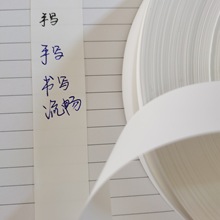 手写
手写
书写
流畅